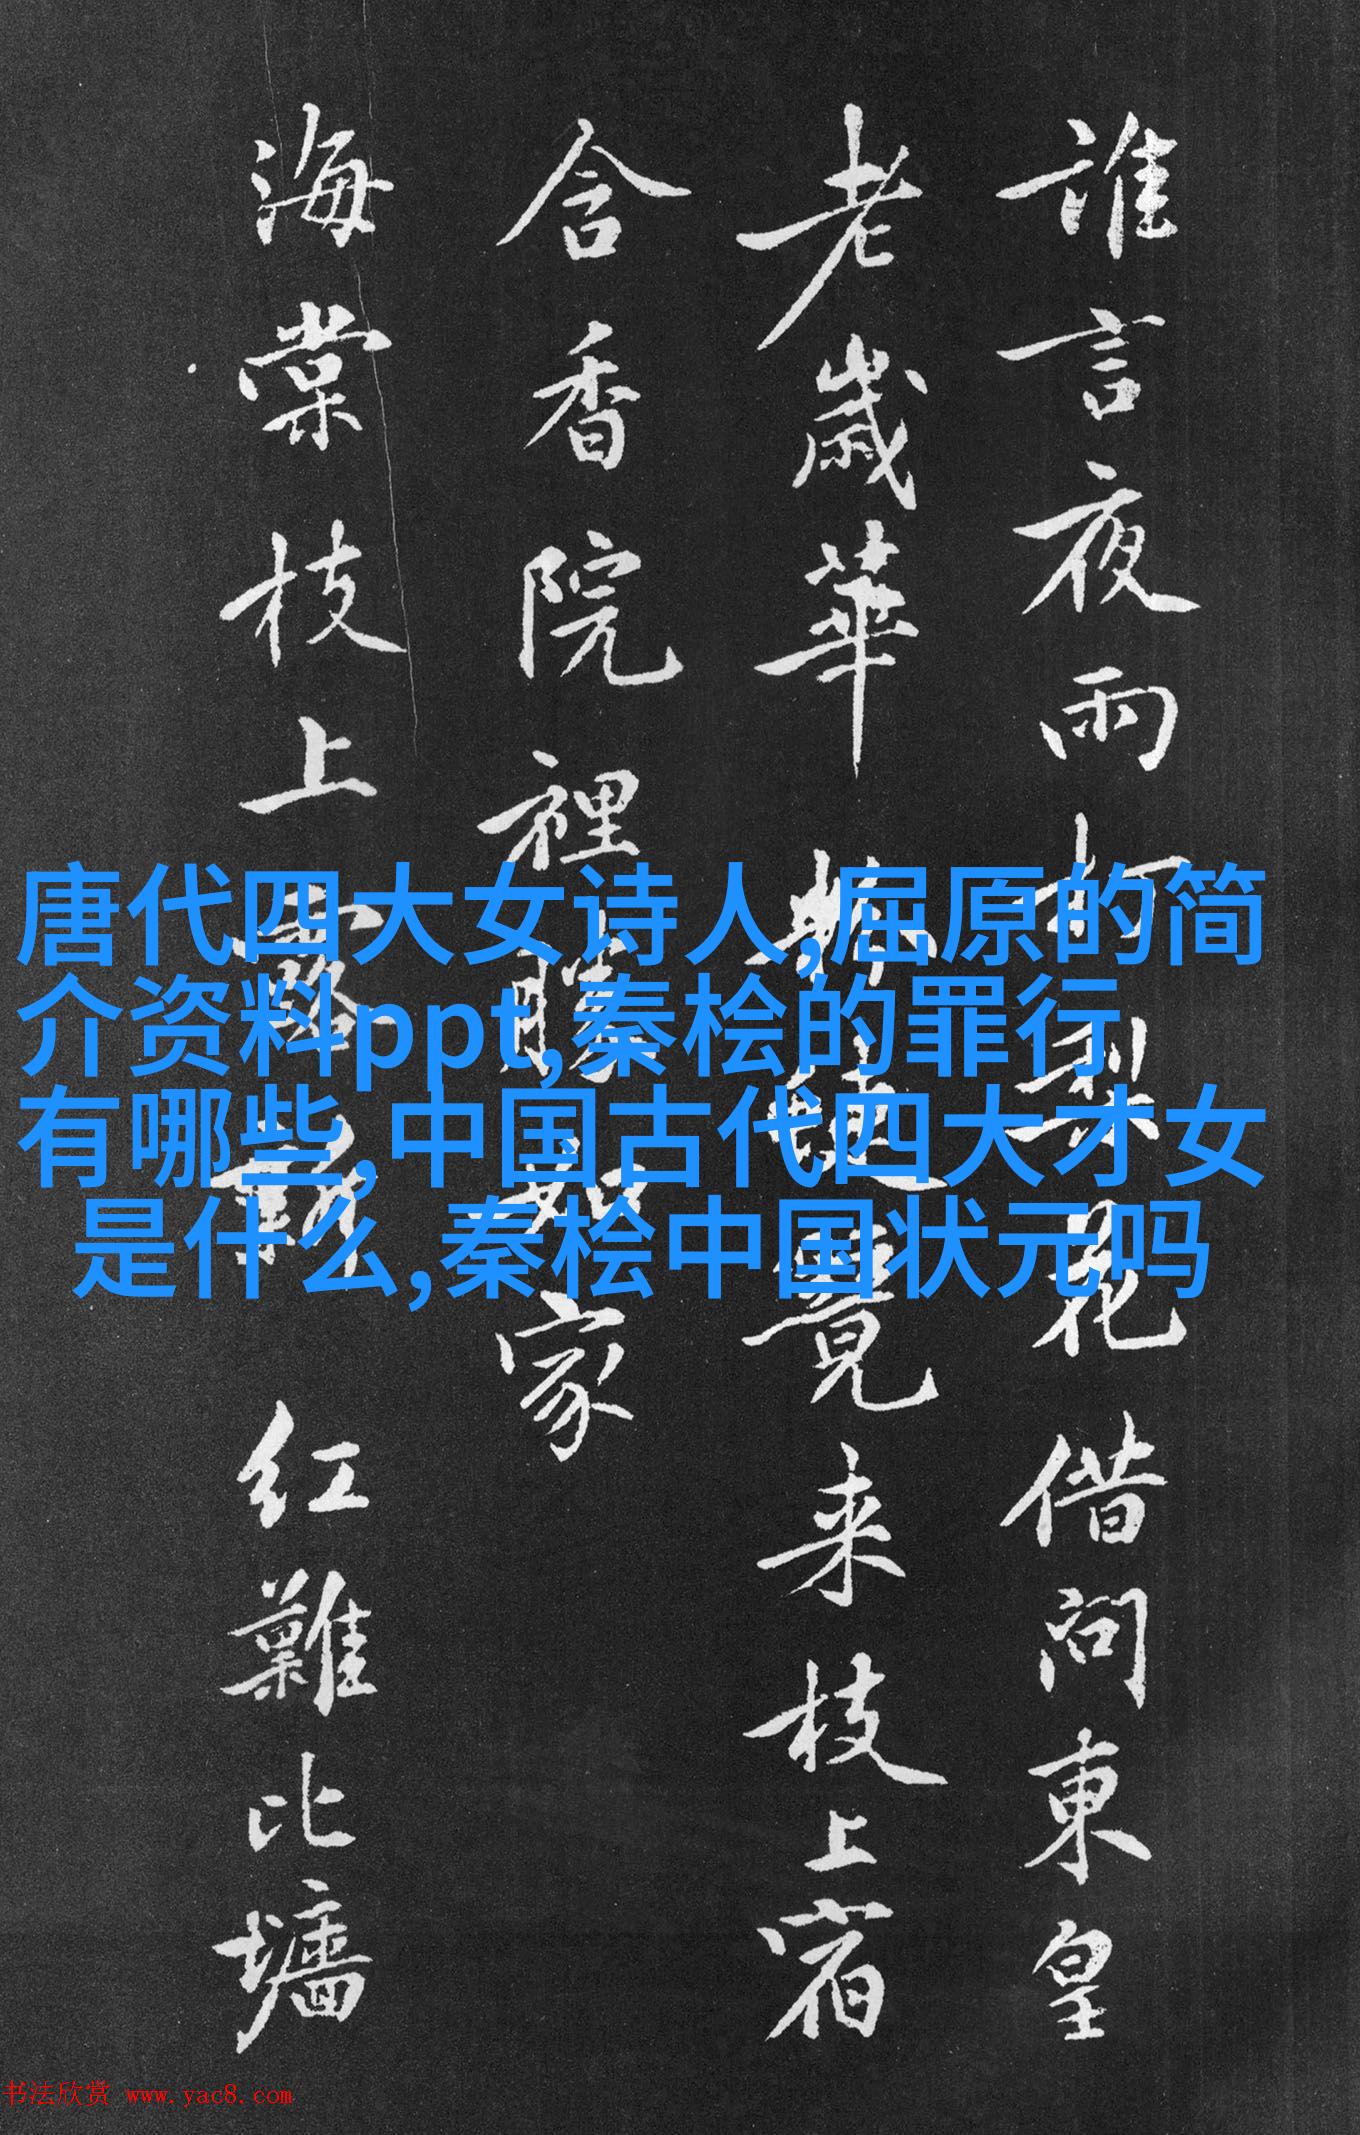 誰言夜雨梨花借問東皇
老歲華竟来枝上宿
含香院裡勝如家
海棠枝上紅難比墻
唐代四大女诗人,屈原的简
介资料ppt,秦桧的罪行
有哪些,中国古代四大才女
是什么,秦桧中国状元吗
书法欣赏 www.yac8.com